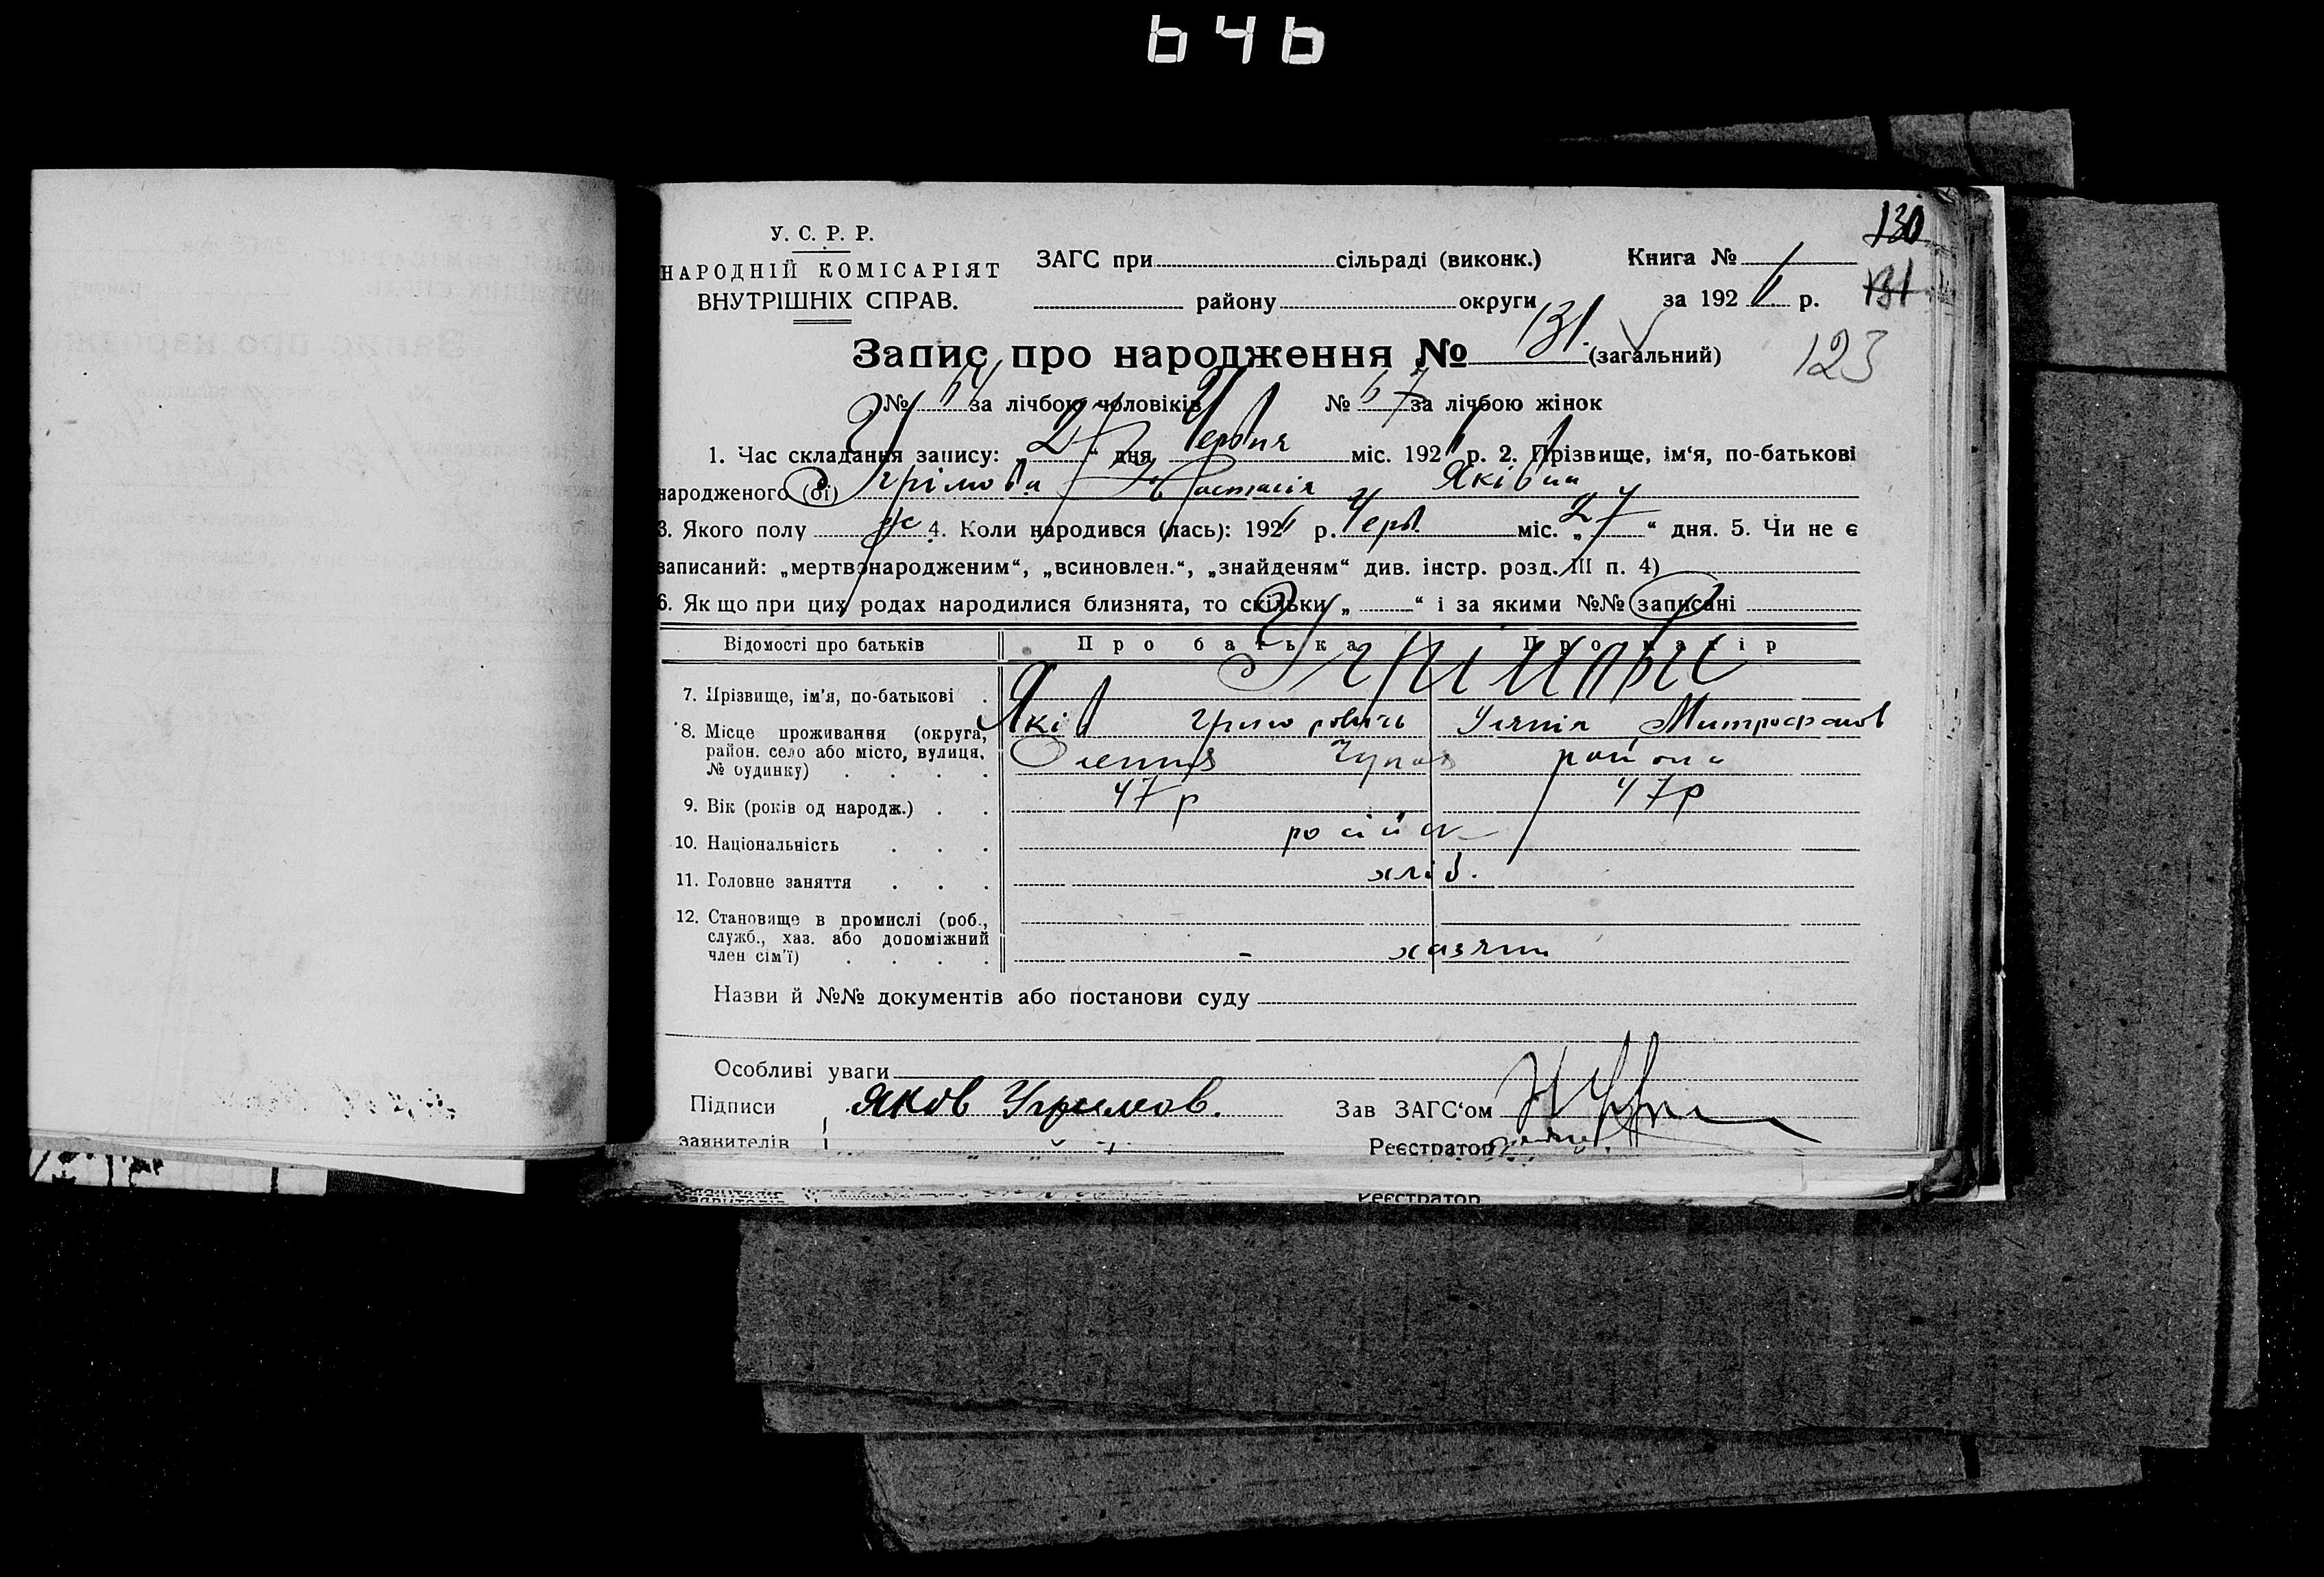 646
130
У. С. Р. Р.
НАРОДНІЙ КОМІСАРІЯТ
ВНУТРІШНІХ СПРАВ.
ЗАГС при сільраді (виконк.)
району округи
Книга № 1
за 1926 р.
131
Запис про народження № 131. (загальний)
123
№ 64 за лічбою чоловіків № 67 за лічбою жінок
1. Час складання запису: „27“ дня Червня міс. 1926 р. 2. Прізвище, ім'я, по-батькові
народженого (ої) Угрімова Настасія Яківна
3. Якого полу ж 4. Коли народився (лась): 1926 р. Черв. міс. „24“ дня. 5. Чи не є
записаний: „мертвонародженим“, „всиновлен.“, „знайденям“ див. інстр. розд. III п. 4)
6. Як що при цих родах народилися близнята, то скільки „ “ і за якими №№ записані
Відомості про батьків Про батька Про матір
Угримови
7. Прізвище, ім'я, по-батькові .
Які в Григорович Уляния Митрофанов
8. Місце проживання (округа,
район. село або місто, вулиця,
№ будинку) . . . .
район
9. Вік (років од народж.) . . 47 р 47 р
10. Національність . . . росій
11. Головне заняття . . . хліб.
12. Становище в промислі (роб.,
служб., хаз. або допоміжний
член сім'ї) . . . . - хазяїн
Назви й №№ документів або постанови суду
Особливі уваги
Підписи Яков Угримов. Зав ЗАГС'ом
заявителів Реєстратор
заявителів Реєстратор